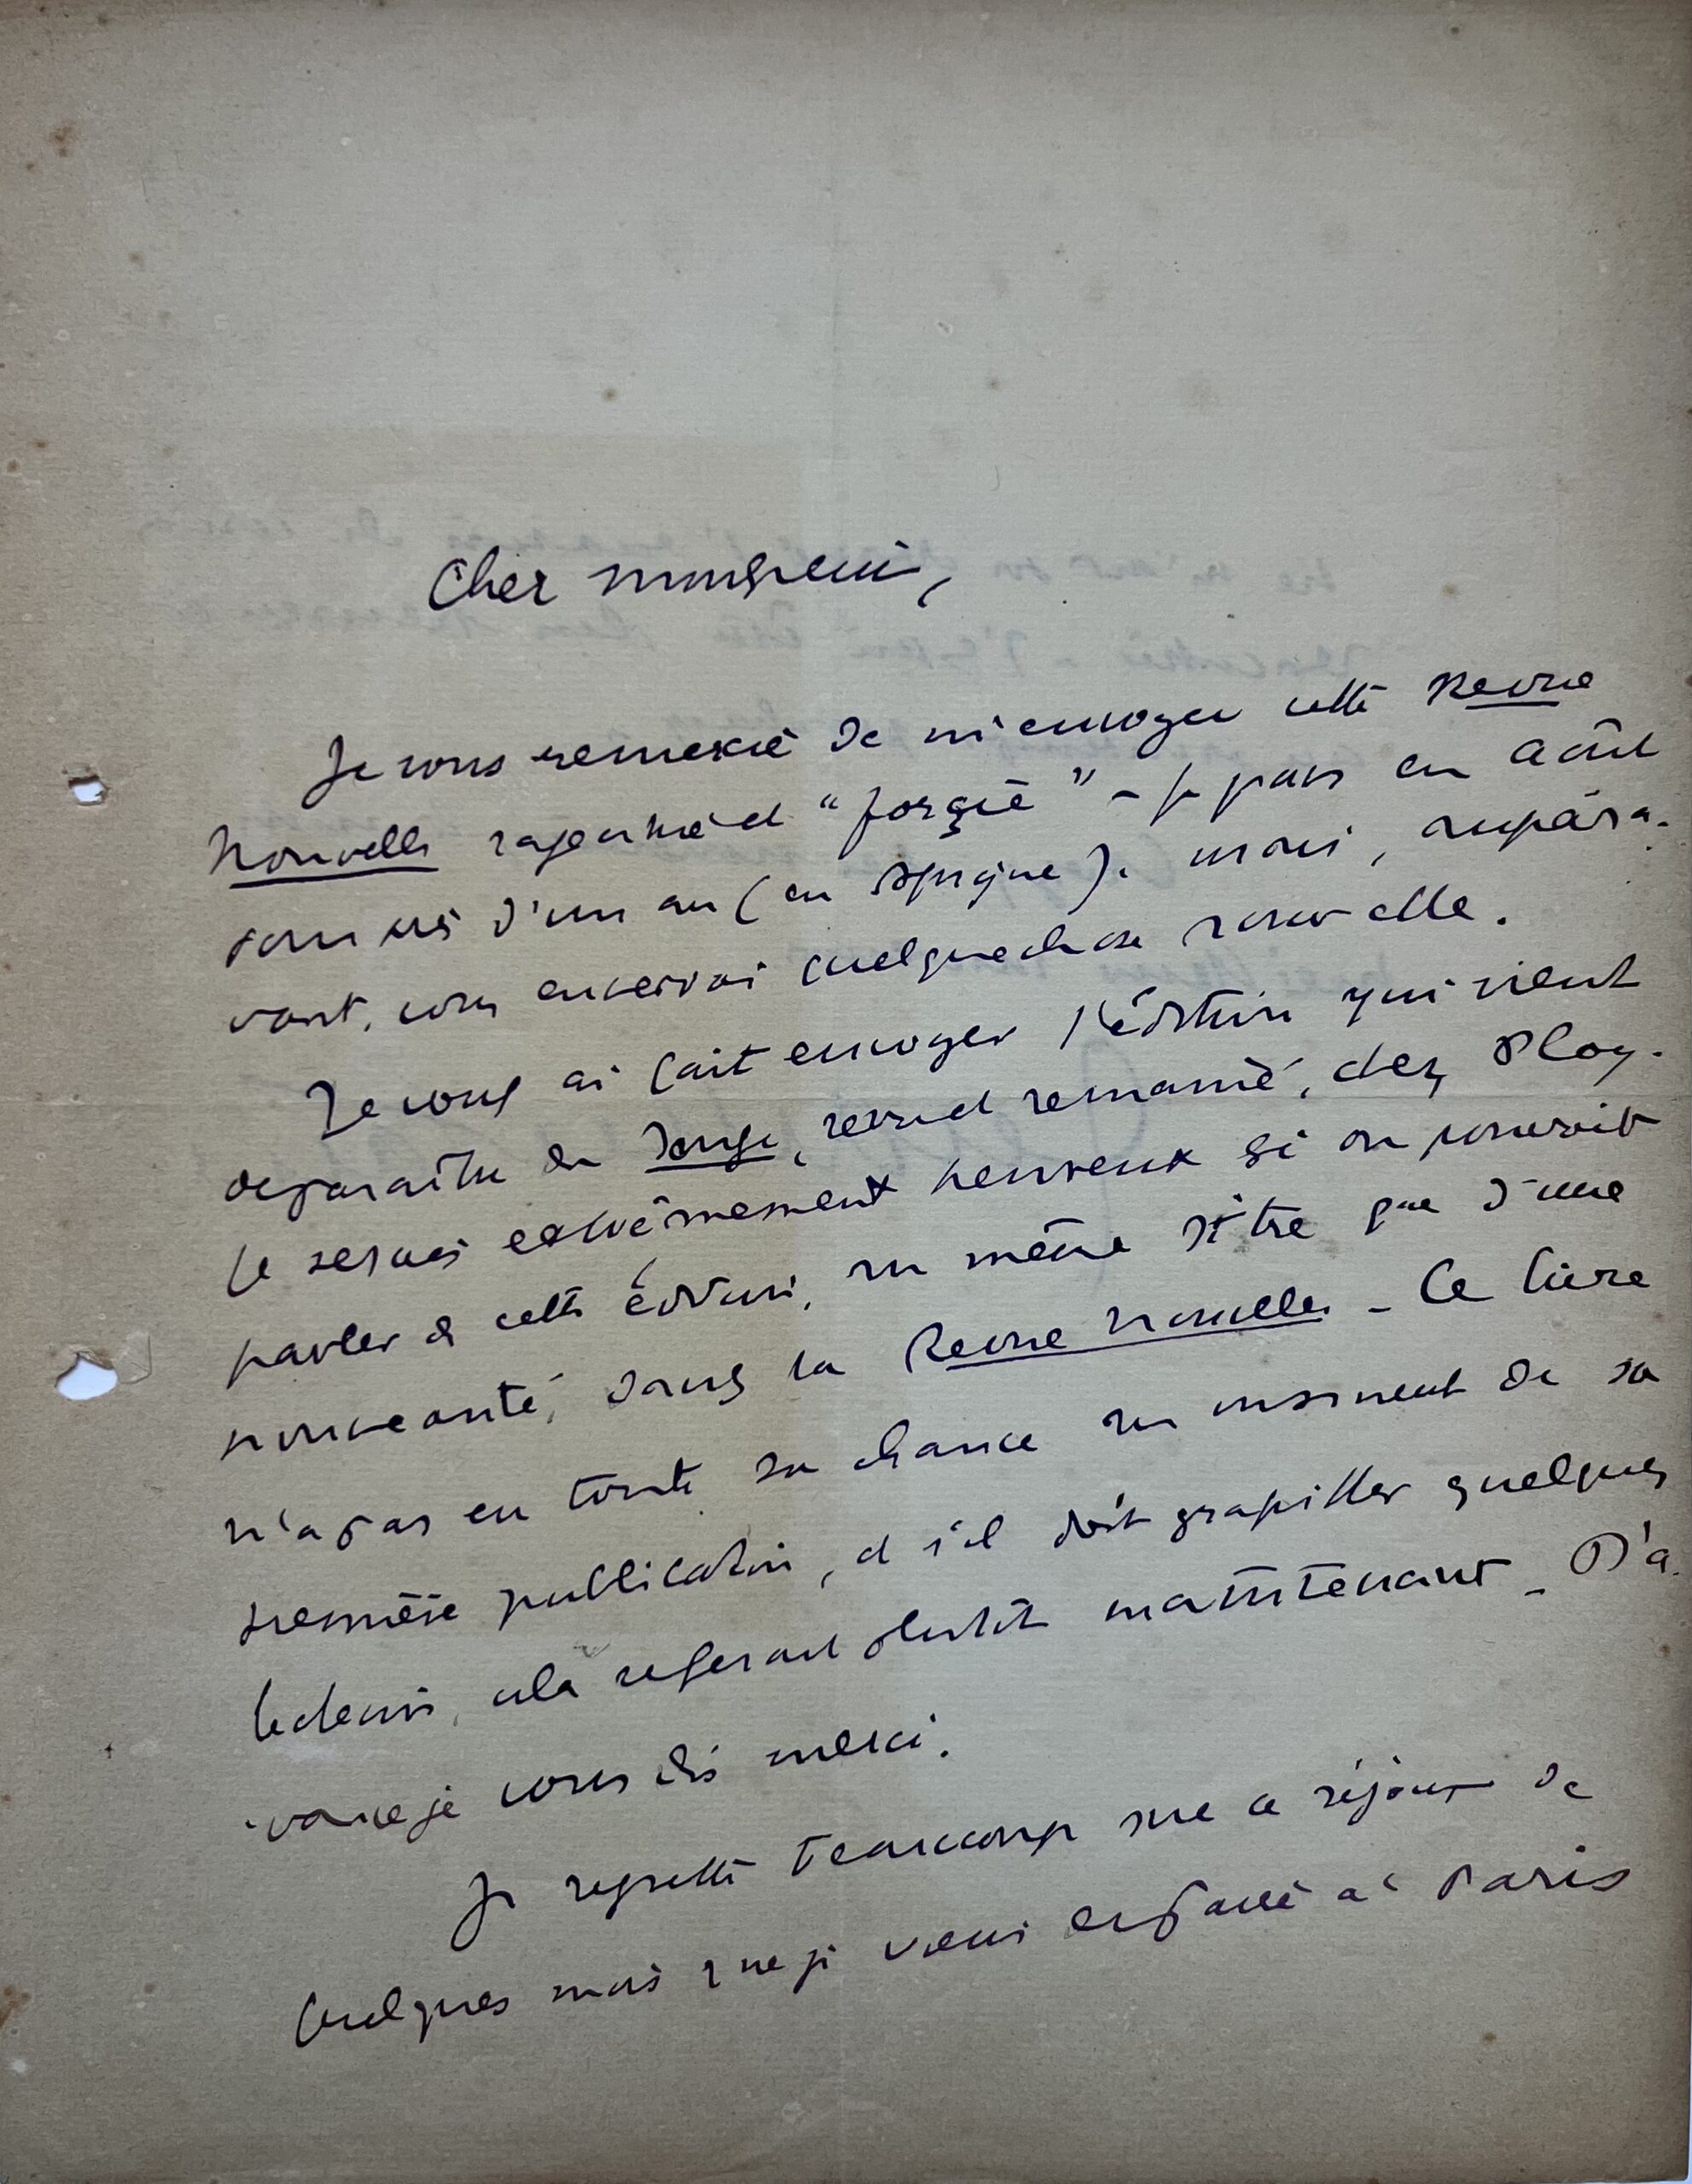 Cher monsieur,
Je vous remercie de m'envoyer cette Revue
Nouvelle rajeunie et "forcie" – je pars en août
pour près d'un an (en Espagne). mais, aupara-
vant, vous enverrai quelque chose nouvelle.
Je vous ai fait envoyer l'édition qui vient
de paraître de , revue et remaniée, chez Plon.
Je serais extrêmement heureux si on pouvait
parler de cette édition, au même titre que d'une
nouveauté, dans la Revue Nouvelle – Ce livre
n'a pas eu toute sa chance au moment de sa
première publication, et s'il doit grapiller quelques
lecteurs, cela se ferait plutôt maintenant – D'a-
vance je vous dis merci.
Je regrette beaucoup que ce séjour de
quelques mois que je viens de passer à Paris